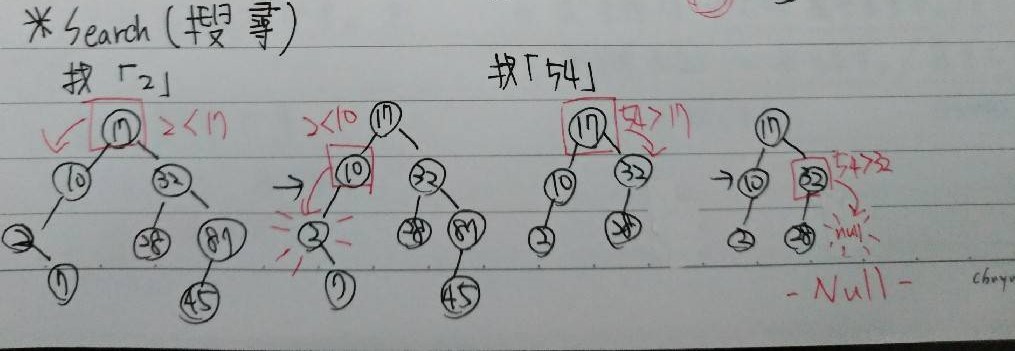 * Search (搜尋)
找「2」
找「54」
17 2<17
10 32
2 28 87
7 45
2<10 17
→ 10 32
2 28 87
7 45
17 54>17
10 32
2 28
17
→ 10 32 54>32
2 28 null
- Null -